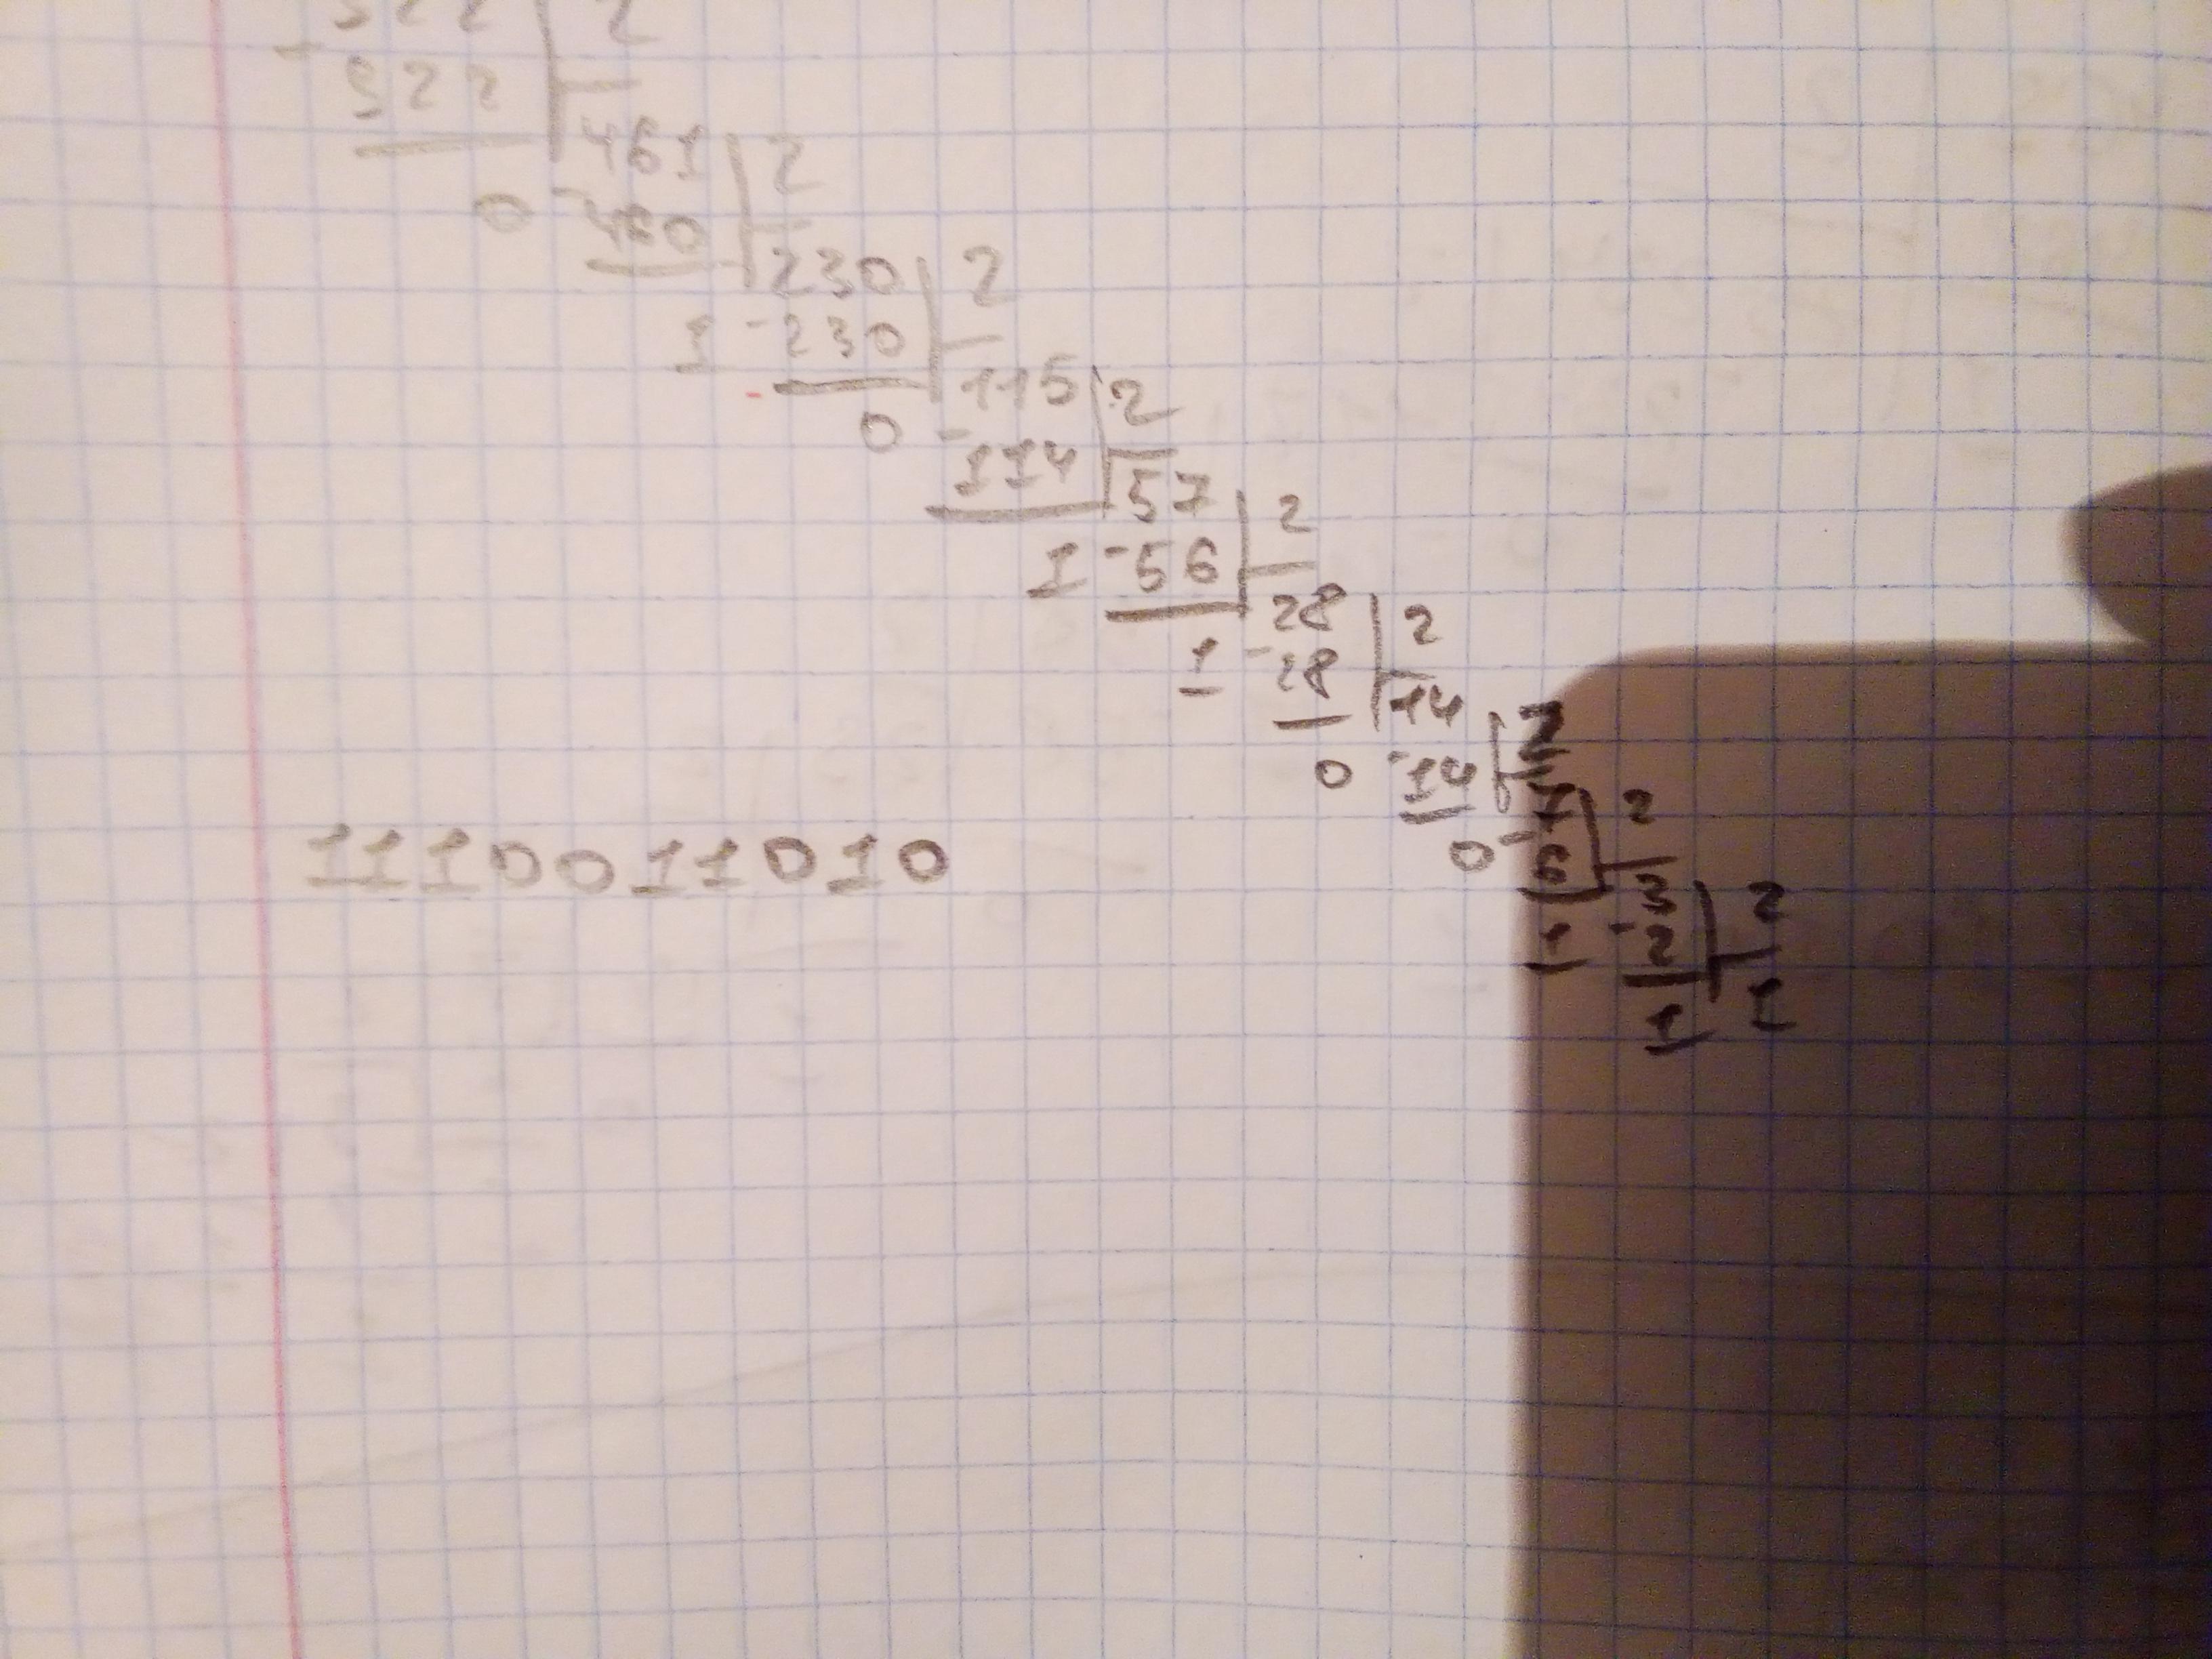 922 2
- 922
461 2
0 - 460
230 2
1 - 230
115 2
0 - 114
57 2
1 - 56
28 2
1 - 28
14 2
0 - 14
7 2
0 - 6
3 2
1 - 2
1 1
1110011010